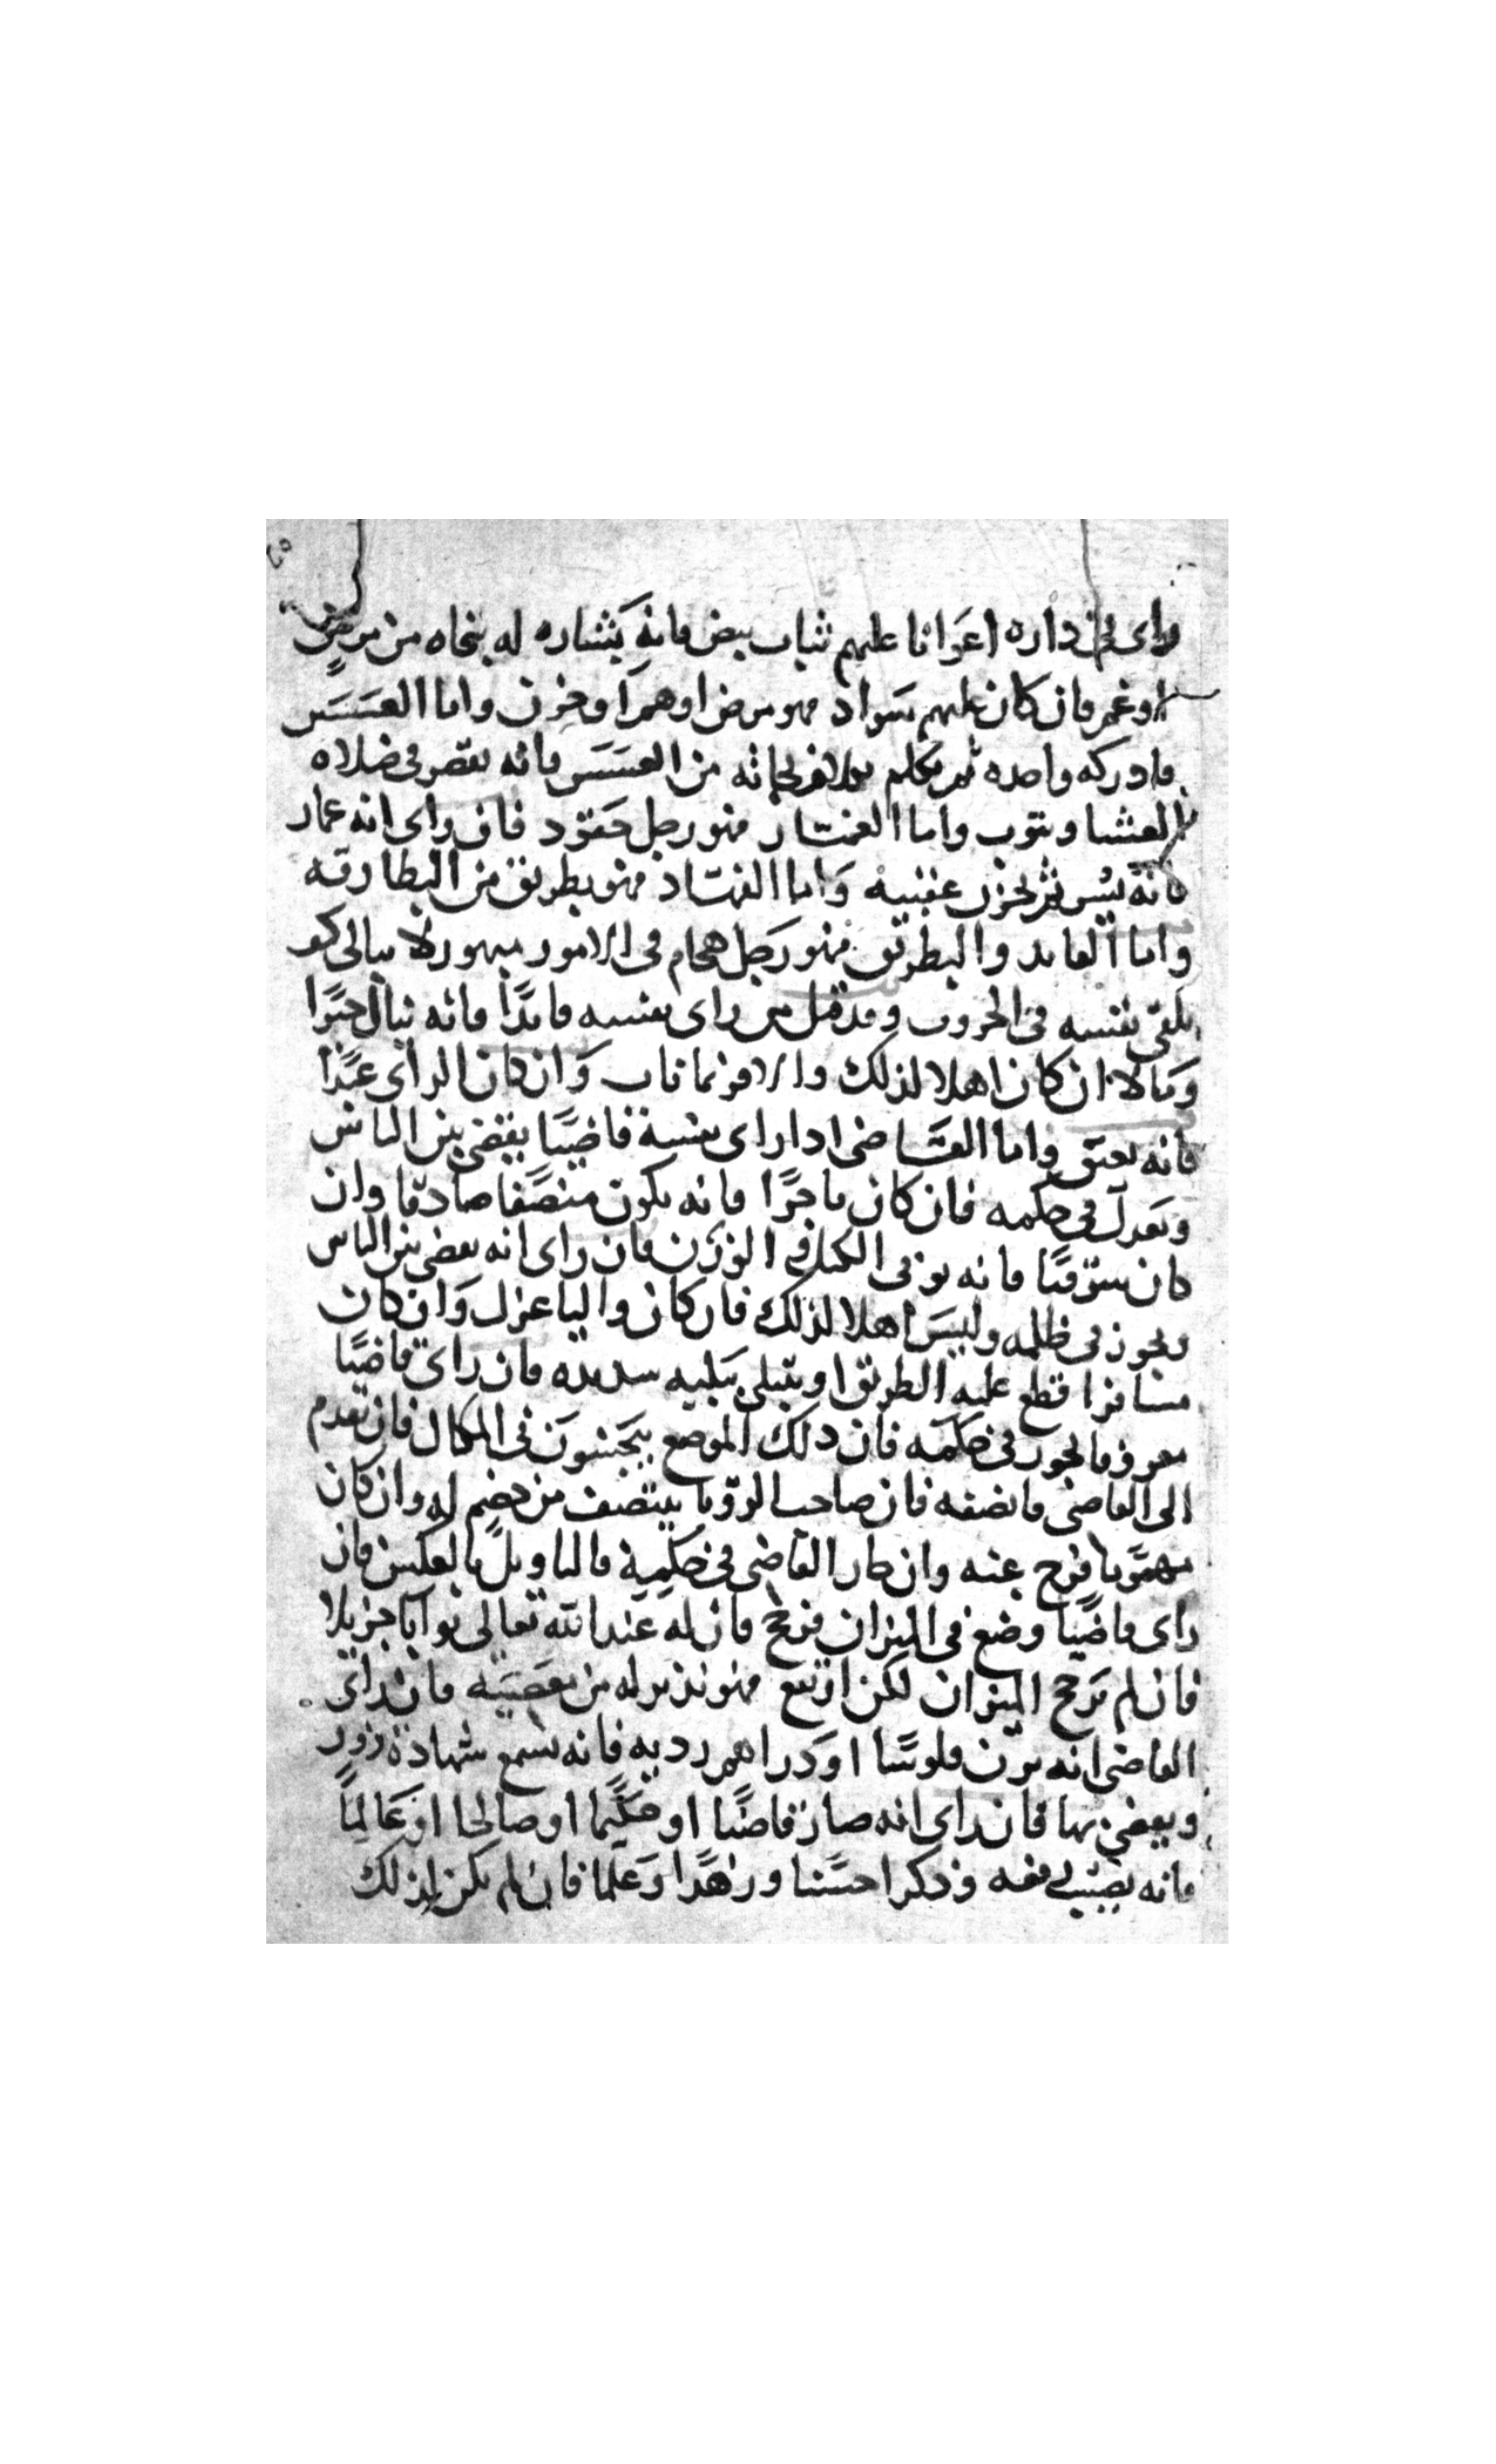 راى في داره اعوانا عليهم ثياب بيض فانه بشاره له بنجاه من مرض
او غم فان كان عليهم سواد فهو مرض او هم او حزن واما العسس
فادركه واحده ثم من العسس فانه يقصر في صلاه
العشا ويتوب واما فهو رجل حقود فان راى انه
فانه ثم يحزن واما فهو بطريق من البطارقه
واما القايد والبطريق فهو رجل هجام في الامور لا يبالي
يلقى نفسه في الحروب وقد قيل من راى نفسه قايدًا فانه ينال خيرًا
ومالا ان كان اهلا لذلك والا وان كان الراى عبدًا
فانه يعتق واما القاضى اذا راى نفسه قاضيًا يقضى بين الناس
ويعدل في حكمه فان كان تاجرًا فانه يكون منصفا صادقا وان
كان سوقيًا فانه يوفى الكيل والوزن فان راى انه يقضى بين الناس
ويجوز فى ظلمه وليس اهلا لذلك فان كان واليا عزل وان كان
مسافرا قطع عليه الطريق او يبتلى ببليه شديده فان راى قاضيًا
معروفا يجور فى حكمه فان ذلك الموضع يبخسون فى المكيال فان تقدم
الى القاضى فانصفه فان صاحب الرويا ينتصف من خصم له وان كان
مهموما فرج عنه وان جار القاضى فى حكمه فالتاويل بالعكس فان
راى قاضيًا وضع فى الميزان فرجح فان له عند الله تعالى ثوابا جزيلا
فان لم يرجح الميزان لكن ارتفع فهو نذير له من معصيته فان راى
القاضى انه يزن فلوسًا او دراهم رديه فانه يسمع شهادة زور
ويقضى بها فان راى انه صار قاضيًا او حكيما او صالحا او عالمًا
فانه يصيب رفعه وذكرا حسنا وزهدا وعلما فان لم يكن لذلك